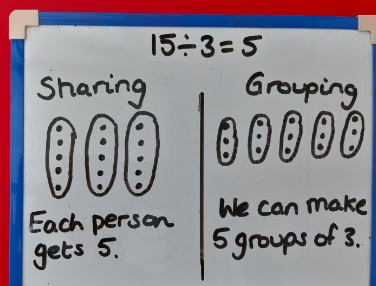 15÷3=5
Sharing
Each person
gets 5.
Grouping
We can make
5 groups of 3.